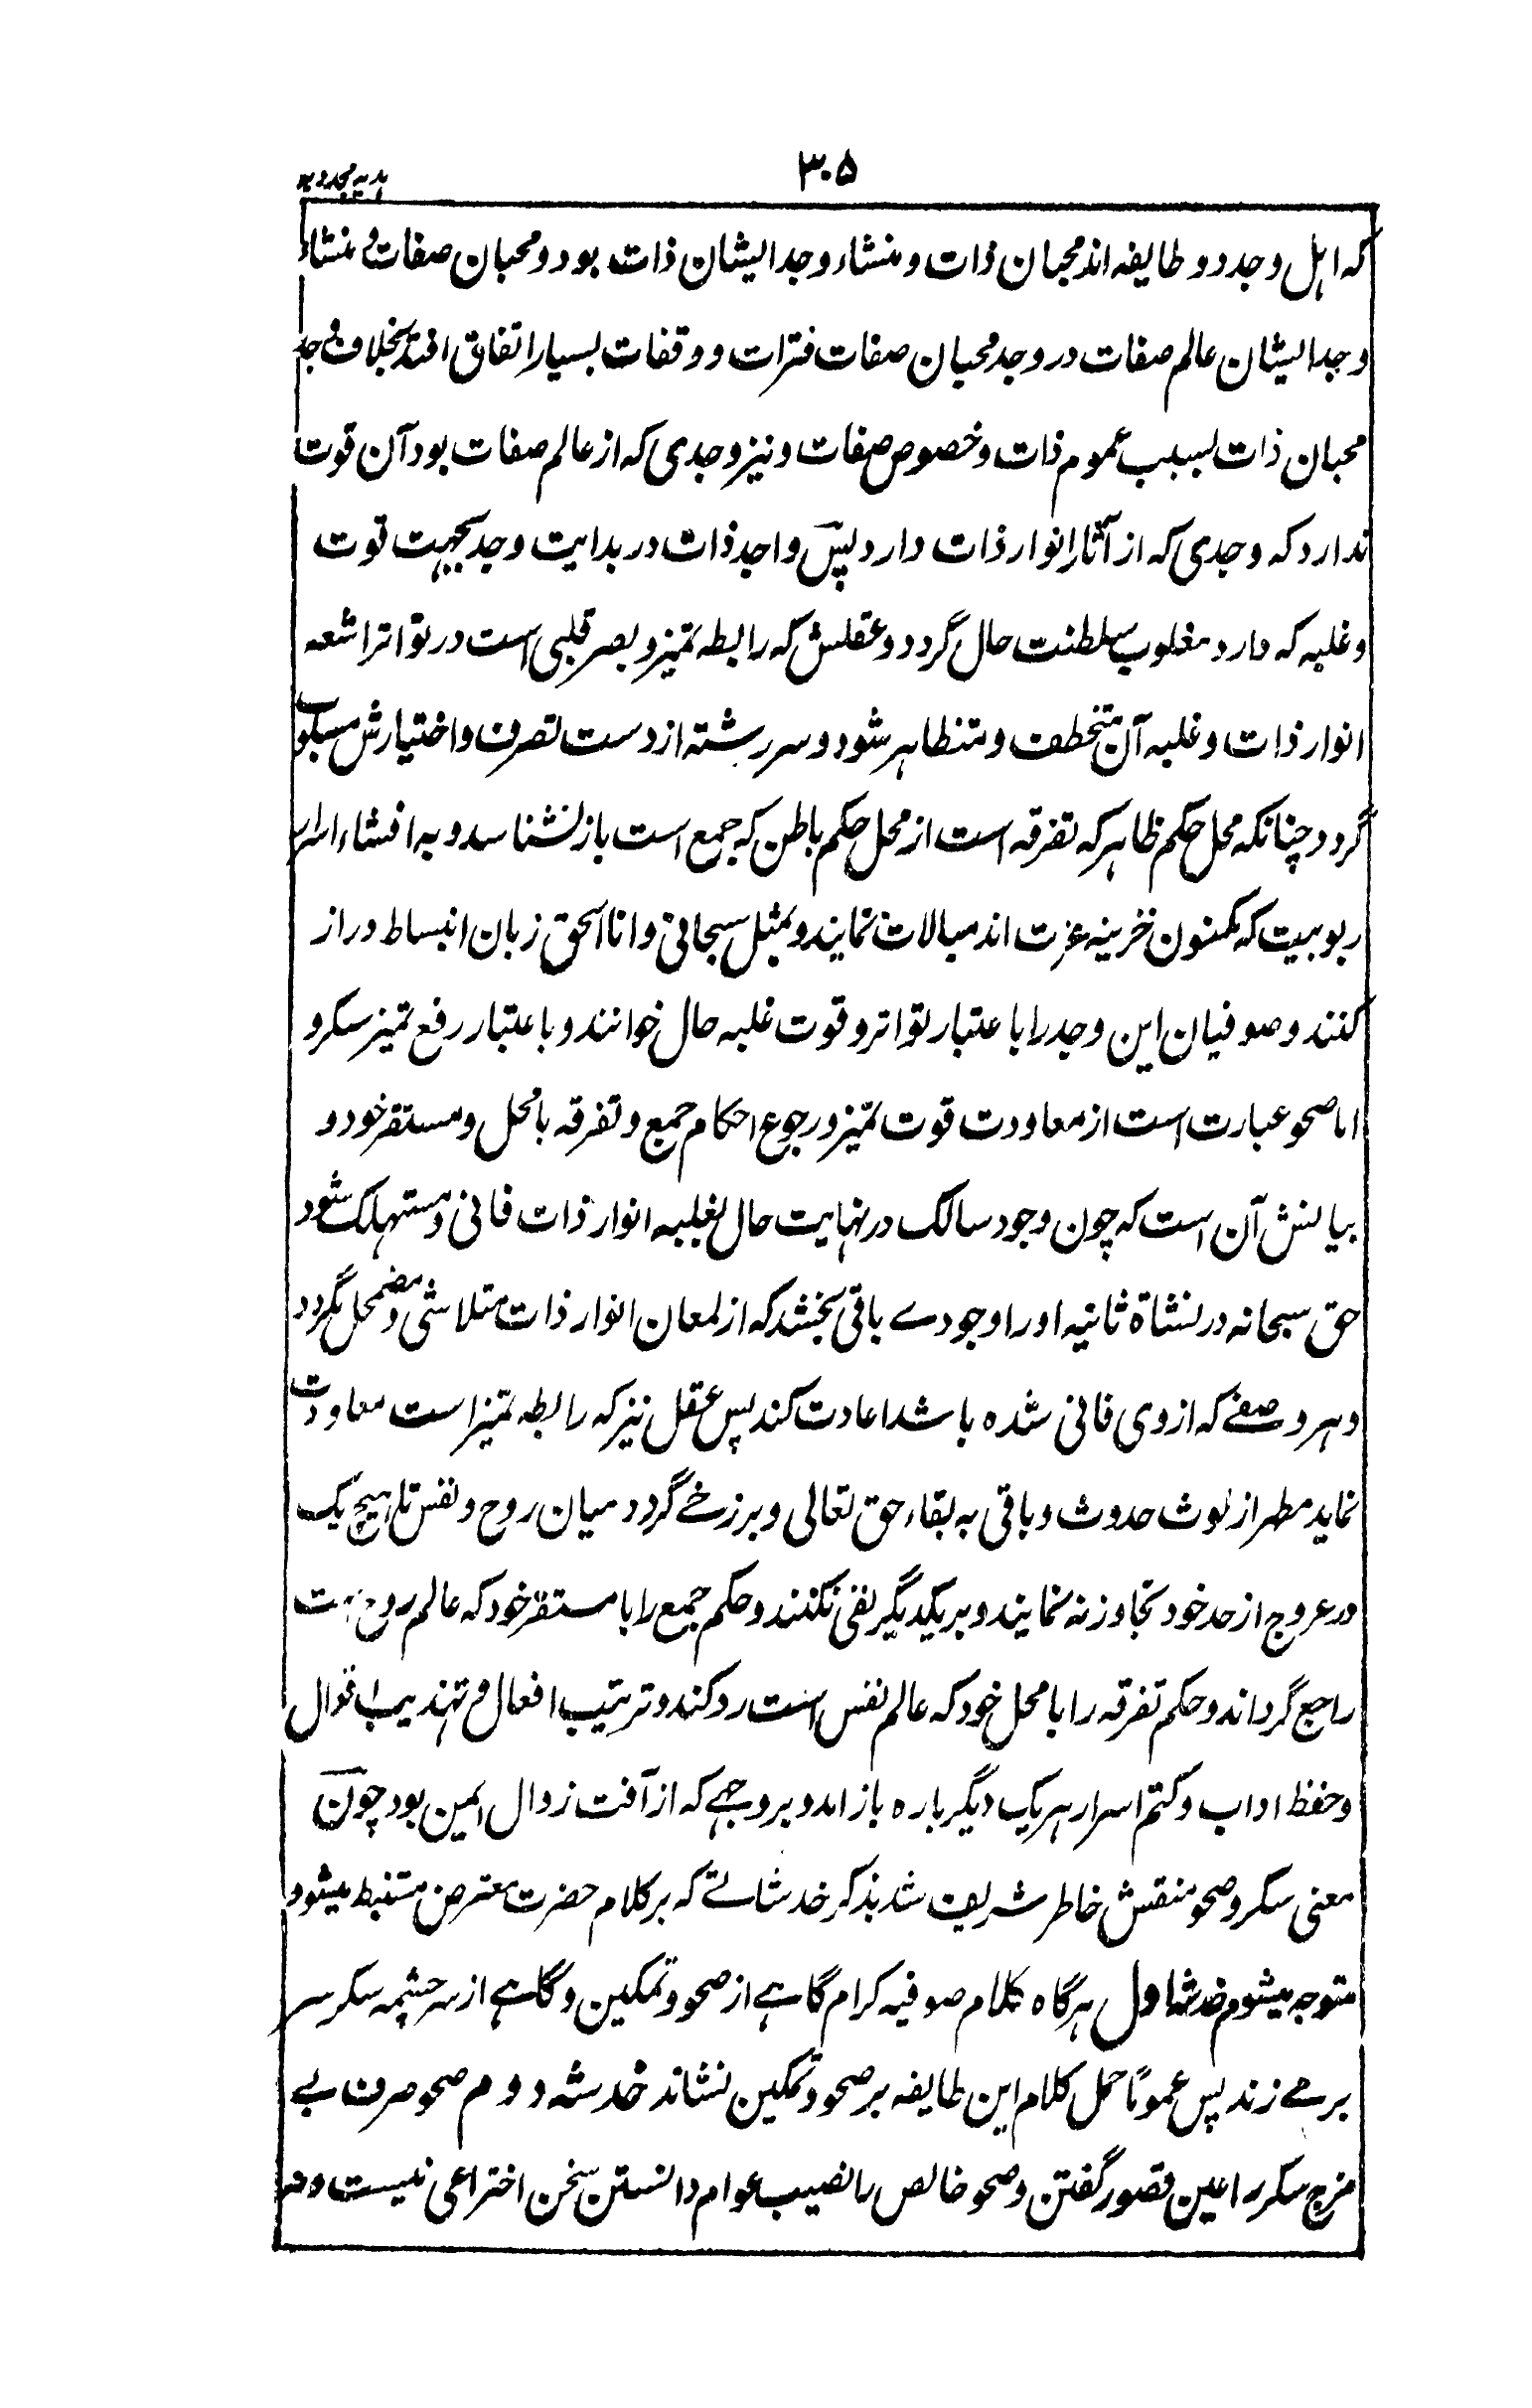 ہدیہ مجددیہ
۳۰۵
کہ اہل وجد دو طایفہ اند محبان ذات و منشاء وجد ایشان ذات بود و محبان صفات و منشاء
وجد ایشان عالم صفات در وجد محبان صفات فترات و وقفات بسیار اتفاق افتد بخلاف وجد
محبان ذات بسبب عموم ذات و خصوص صفات و نیز وجدی کہ از عالم صفات بود آن قوت
ندارد کہ وجدی کہ از آثار انوار ذات دارد پس واجد ذات در بدایت وجد بجہت قوت
و غلبہ کہ دارد مغلوب سلطنت حال گردد و عقلش کہ رابطہ تمیز و بصر قلبی است در تواتر اشعہ
انوار ذات و غلبہ آن متخطف و متظاہر شود و سررشتہ از دست تصرف و اختیارش مسلوب
گردد چنانکہ محل حکم ظاہر کہ تفرقہ است از محل حکم باطن کہ جمع است باز نشناسد و بہ افشاء اسرار
ربوبیت کہ مکنون خزینہ عزت اند مبالات ننمایند و بمثل سبحانی و انا الحق زبان انبساط دراز
کنند و صوفیان این وجد را باعتبار تواتر و قوت غلبہ حال خوانند و باعتبار رفع تمیز سکر و
اما صحو عبارت است از معاودت قوت تمیز و رجوع احکام جمع و تفرقہ با محل و مستقر خود و
بیانش آن است کہ چون وجود سالک در نہایت حال بغلبہ انوار ذات فانی و مستہلک شود
حق سبحانہ در نشاۃ ثانیہ او را وجودے باقی بخشد کہ از لمعان انوار ذات متلاشی و مضمحل نگردد
و ہر وصفے کہ ازوی فانی شدہ باشد اعادت کند پس عقل نیز کہ رابطہ تمیز است معاودت
نماید مطہر از لوث حدوث و باقی بہ بقاء حق تعالی و برزخے گردد میان روح و نفس تا ہیچ یک
در عروج از حد خود تجاوز نہ نمایند و بر یکدیگر نفی نکنند و حکم جمع را با مستقر خود کہ عالم روح است
راجع گرداند و حکم تفرقہ را با محل خود کہ عالم نفس است رد کند و ترتیب افعال و تہذیب اقوال
و حفظ اداب و کتم اسرار ہر یک دیگر بارہ باز اید و بر وجہے کہ از آفت زوال ایمن بود چون
معنی سکر و صحو منقش خاطر شریف شد بذکر خدشاتے کہ بر کلام حضرت معترض مستنبط میشود
متوجہ میشوم خدشہ اول ہرگاہ کلام صوفیہ کرام گاہے از صحو و تمکین و گاہے از سرچشمہ سکر سر
برمے زند پس عموماً حمل کلام این طایفہ بر صحو و تمکین نشاند خدشہ دوم صحو صرف بے
مزج سکر را عین قصور گفتن و صحو خالص را نصیب عوام دانستن سخن اختراعی نیست و در